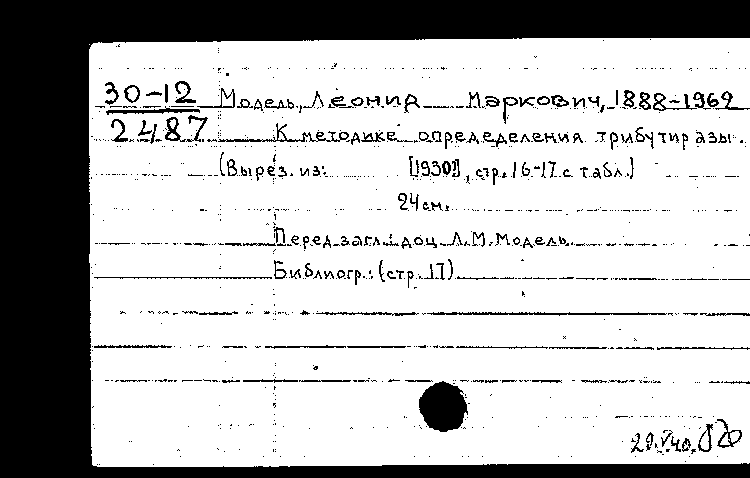 30-12
2487
Модель, Леонид Маркович, 1888-1969
К методике определеления трибутиразы.
(Вырез. из: [1930], стр. 16-17 с табл.)
24 см.
Перед загл.: доц. Л.М. Модель.
Библиогр.: (стр. 17)
29.V.40.